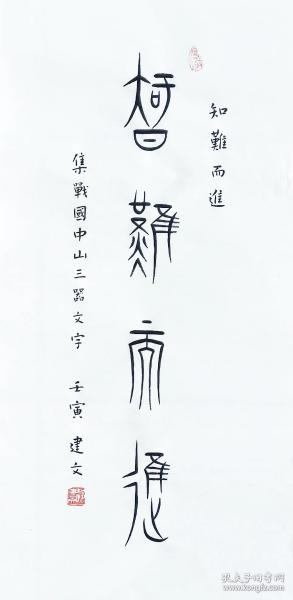 知難而進
智難而進
集戰國中山三器文字 壬寅 建文
孔夫子旧书网
www.kongfz.com